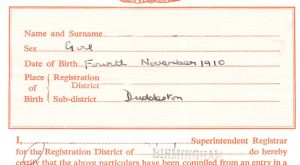 Name and Surname
Sex Girl
Date of Birth Fourth November 1910
Place of Birth { Registration District
Sub-district Duddeston
I, Superintendent Registrar
for the Registration District of BIRMINGHAM do hereby
certify that the above particulars have been compiled from an entry in a